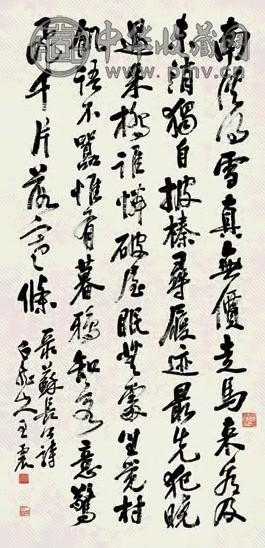 中华收藏网
www.pmv.cn
南溪得雪真無價走馬來看及
未消獨自披榛尋履迹最先犯曉
過朱橋誰憐破屋眠無處坐覺村
飢語不囂惟有暮鴉知客意驚
飛千片落寒條
蘇長公詩
白龍山人王震